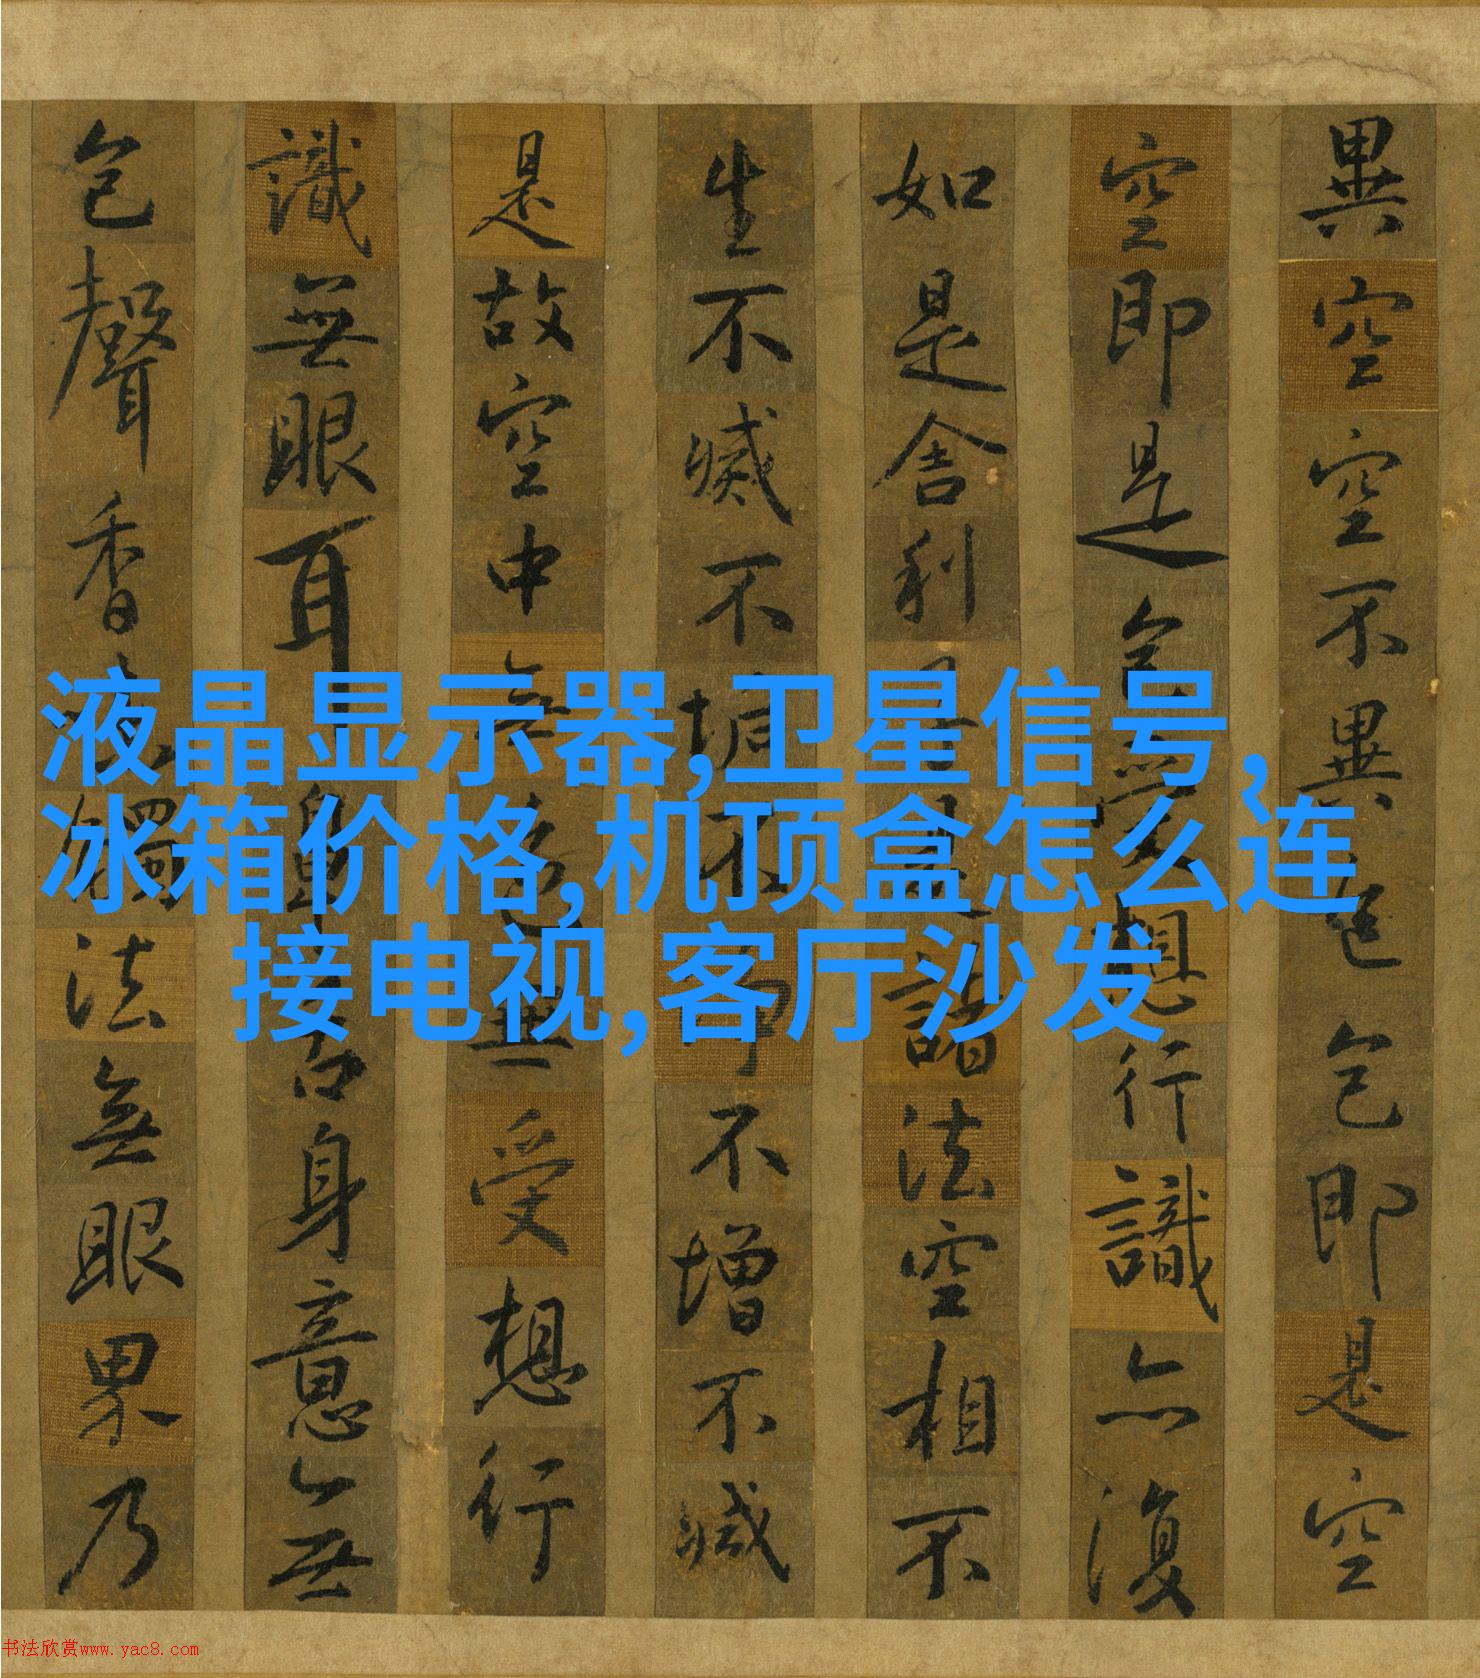 異空空不異色色即是空
空即是色受想行識亦復
如是舍利子是諸法空相不
生不滅不垢不淨不增不減
是故空中無色無受想行
識無眼耳鼻舌身意無
色聲香味觸法無眼界乃
液晶显示器,卫星信号,
冰箱价格,机顶盒怎么连
接电视,客厅沙发
书法欣赏www.yac8.com